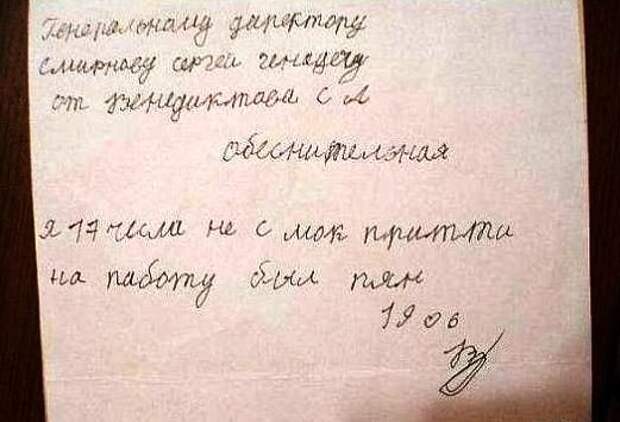 Генеральному директору
смирнову сергей генадечу
от Венедиктова с л
обеснителэная
я 17 числа не с мок притти
на работу был пян
19 06